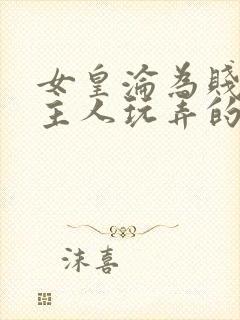 女皇淪為賤
主人玩弄的
沫喜